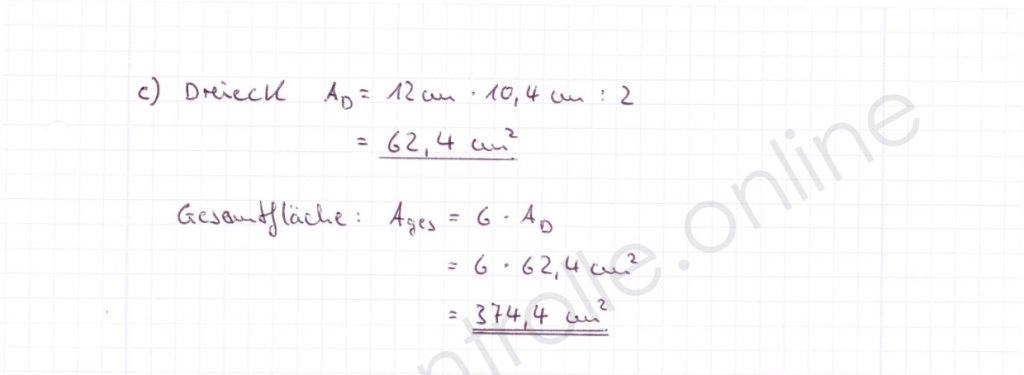 c) Dreieck A_D = 12 cm · 10,4 cm : 2
= 62,4 cm²
Gesamtfläche: A_ges = 6 · A_D
= 6 · 62,4 cm²
= 374,4 cm²
ntrolle.online